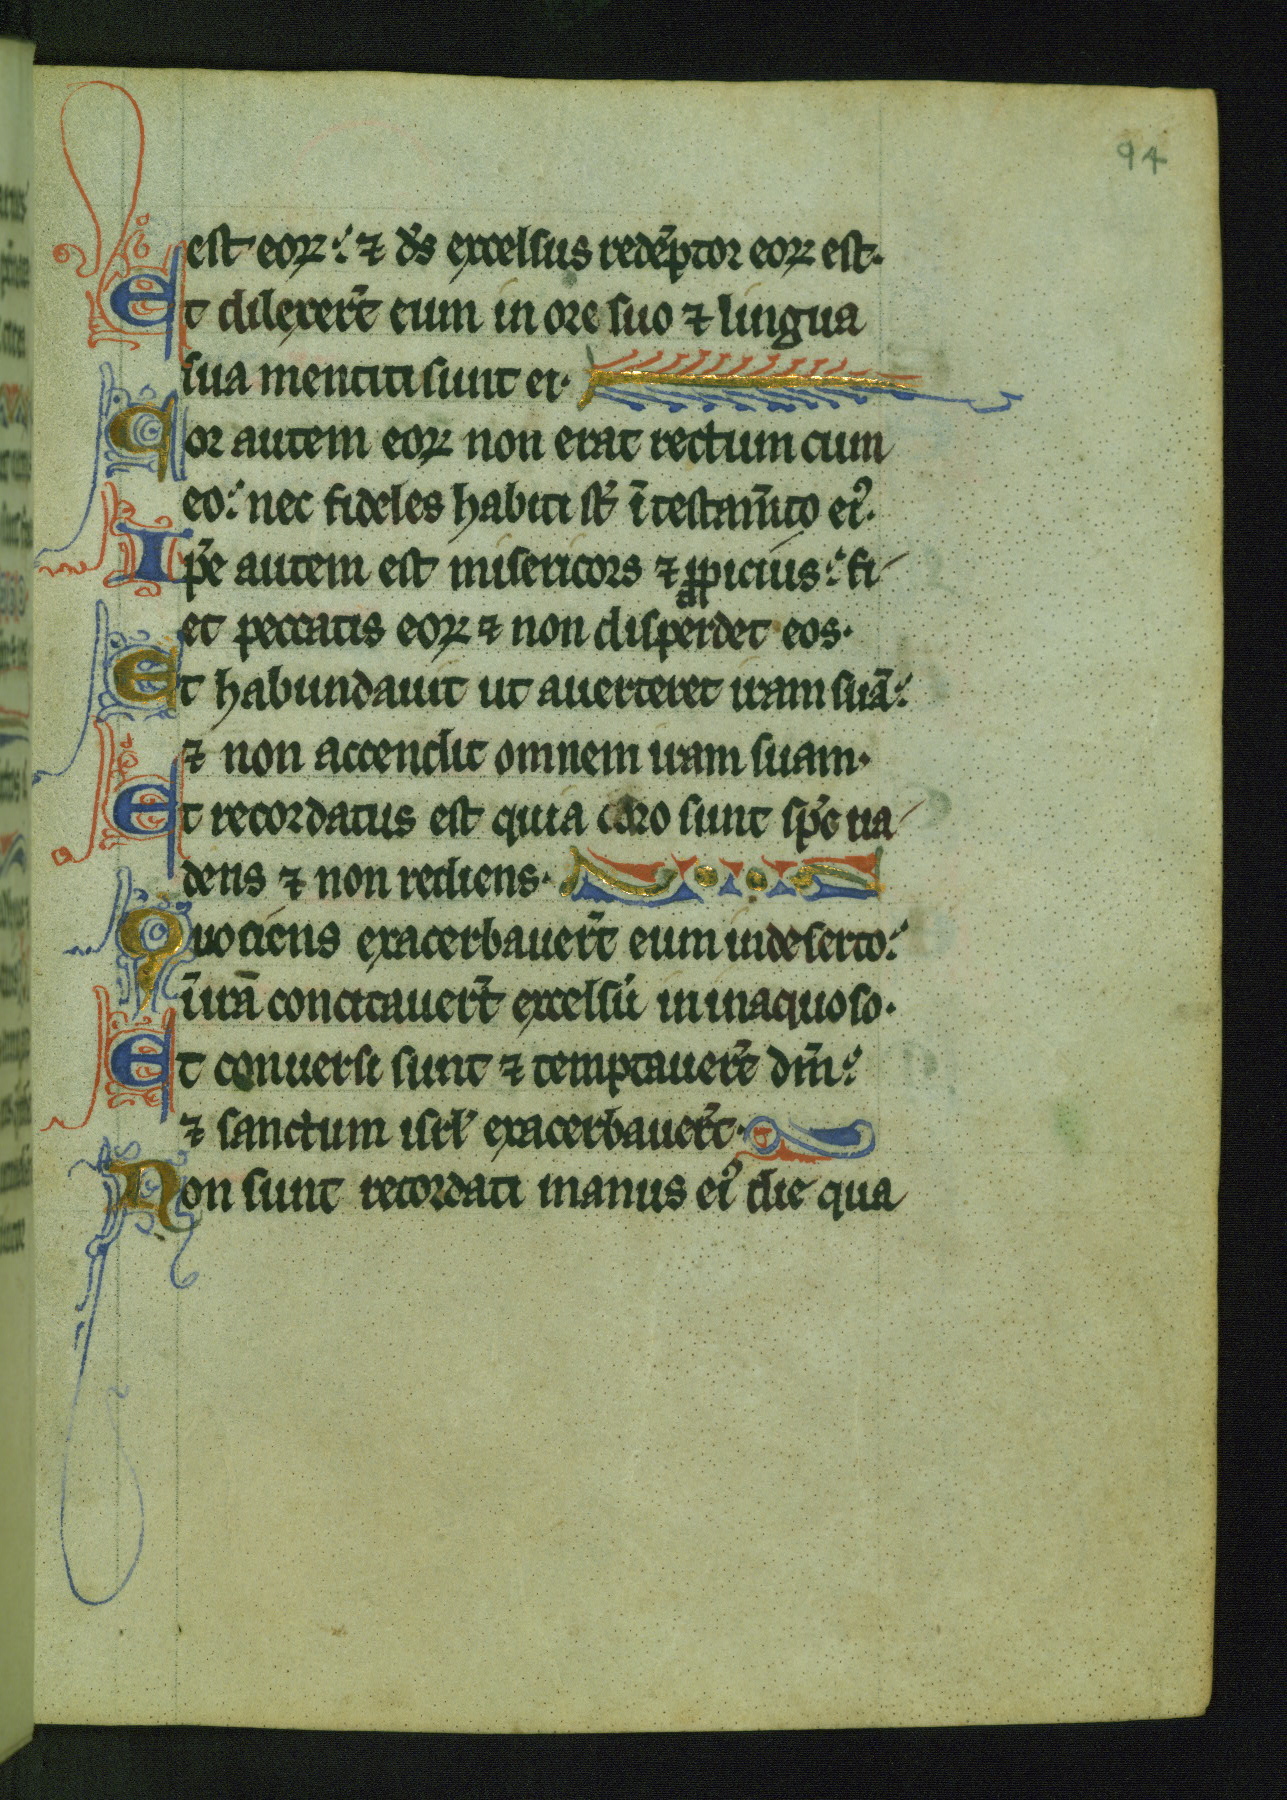 94
est eoꝝ: ⁊ d̄s excelsus redēptor eoꝝ est.
Et dilexer̄t eum in ore suo ⁊ lingua
sua mentiti sunt ei.
Cor autem eoꝝ non erat rectum cum
eo: nec fideles habiti st̄ ī testam̄to ei᷒.
Ip̄e autem est misericors ⁊ ꝓpicius: fi
et peccatis eoꝝ ⁊ non disperdet eos.
Et habundauit ut auerteret iram suā:
⁊ non accendit omnem iram suam.
Et recordatus est quia caro sunt sp̄c ua
dens ⁊ non rediens.
Quociens exacerbauer̄t eum in deserto:
ī irā concitauer̄t excelsū in inaquoso.
Et conuersi sunt ⁊ temptauer̄t dm̄:
⁊ sanctum isrl̄ exacerbauer̄t.
Non sunt recordati manus ei᷒ die qua